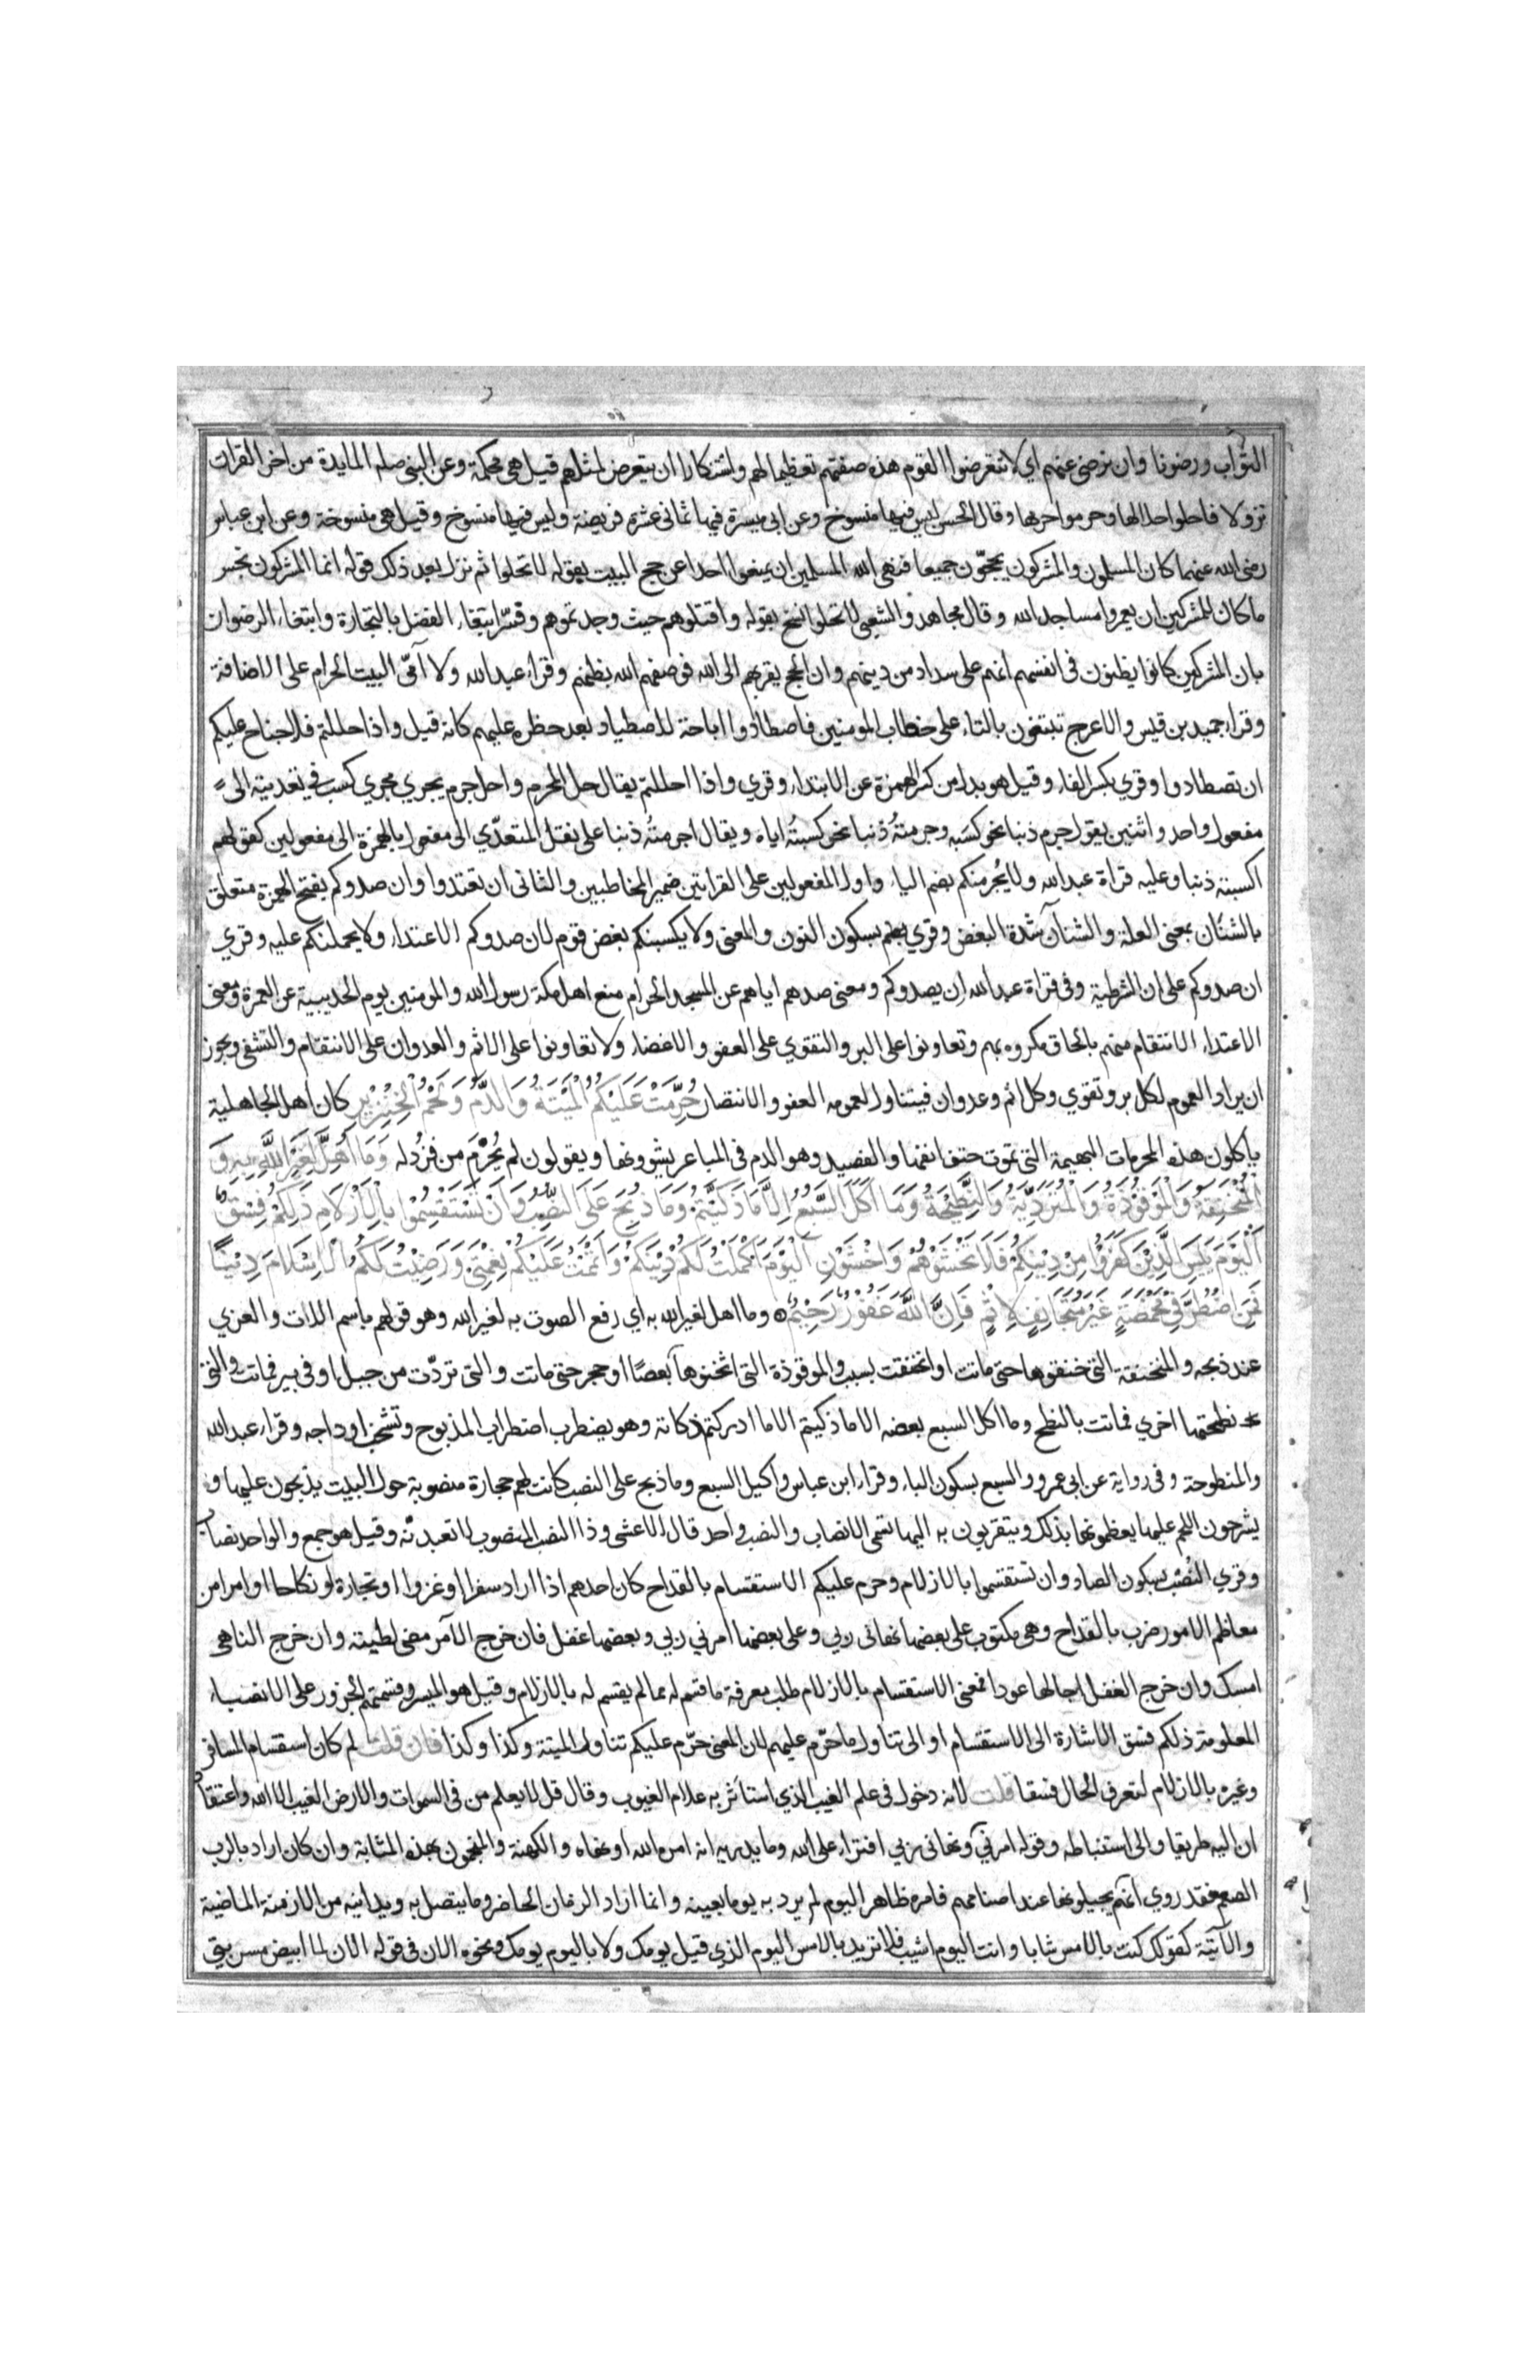 الثواب ورضوانا وان يرضى عنهم اي لا تتعرضوا لقوم هذه صفتهم تعظيما لهم واستنكارا ان يتعرض لمثلهم قيل هي محكمة وعن النبي صلعم المايدة من اخر القران
نزولا فاحلوا حلالها وحرموا حرامها وقال الحسن ليس فيها منسوخ وعن ابي ميسرة فيها ثماني عشرة فريضة وليس فيها منسوخ وقيل هي منسوخة وعن ابن عباس
رضى الله عنهما كان المسلمون والمشركون يحجّون جميعا فنهى الله المسلمين ان يمنعوا احدا عن حج البيت بقوله لا تحلوا ثم نزل بعد ذلك قوله انما المشركون نجس
ما كان للمشركين ان يعمروا مساجد الله وقال مجاهد والشعبي لا تحلوا نسخ بقوله واقتلوهم حيث وجدتموهم وفسّر ابتغاء الفضل بالتجارة وابتغاء الرضوان
بان المشركين كانوا يظنون في انفسهم انهم على سداد من دينهم وان الحج يقربهم الى الله فوصفهم الله بظنهم وقراء عبد الله ولا آمّي البيت الحرام على الاضافة
وقراء حميد بن قيس والاعرج تبتغون بالتاء على خطاب المومنين فاصطادوا اباحة للاصطياد بعد حظره عليهم كانه قيل واذا حللتم فلا جناح عليكم
ان تصطادوا وقري بكسر الفاء وقيل هو بدل من كسر الهمزة عن الابتداء وقري واذا احللتم يقال حل المحرم واحل جرم يجري مجري كسب في تعديته الى
مفعول واحد واثنين يقول جرم ذنبا نحو كسبه وجرمتُه ذنبا نحو كسبتُه اياه ويقال اجرمتُه ذنبا على نقل المتعدّي الى مفعول بالهمزة الى مفعولين كقولهم
اكسبته ذنبا وعليه قراة عبد الله ولا يُجرمنكم بضم الياء واول المفعولين على القراتين ضمير المخاطبين والثاني ان تعتدوا وان صدوكم بفتح الهمزة متعلق
بالشنآن بمعنى العلة والشنآن شدة البغض وقري بسكون النون والمعنى ولا يكسبنكم بغض قوم لان صدوكم الاعتداء ولا يحملنكم عليه وقري
ان صدوكم على ان الشرطية وفي قراة عبد الله اِن يصدوكم ومعنى صدهم اياهم عن المسجد الحرام منع اهل مكة رسول الله والمومنين يوم الحديبية عن العمرة ومعنى
الاعتداء الانتقام منهم بالحاق مكروه بهم وتعاونوا على البر والتقوي على العفو والاغضاء ولا تعاونوا على الاثم والعدوان على الانتقام والتشفي ويجوز
ان يراد العموم لكل بر وتقوي وكل اثم وعدوان فيتناول لعمومه العفو والانتصار حُرِّمَتْ عَلَيْكُمُ الْمَيْتَةُ وَالدَّمُ وَلَحْمُ الْخِنْزِيْرِ كان اهل الجاهلية
ياكلون هذه المحرمات البهيمة التي تموت حتف انفها والفصيد وهو الدم في المباعر يشوونها ويقولون لم يُحْرَم من فُزْدله وَمَا اُهِلَّ لِغَيْرِ اللَّهِ بِهِ وَ
الْمُنْخَنِقَةُ وَالْمَوْقُوْذَةُ وَالْمُتَرَدِّيَةُ وَالنَّطِيْحَةُ وَمَا اَكَلَ السَّبُعُ اِلَّا مَا ذَكَّيْتُمْ وَمَا ذُبِحَ عَلَى النُّصُبِ وَاَنْ تَسْتَقْسِمُوْا بِالْاَزْلَامِ ذَلِكُمْ فِسْقٌ
اَلْيَوْمَ يَئِسَ الَّذِيْنَ كَفَرُوْا مِنْ دِيْنِكُمْ فَلَا تَخْشَوْهُمْ وَاخْشَوْنِ اَلْيَوْمَ اَكْمَلْتُ لَكُمْ دِيْنَكُمْ وَاَتْمَمْتُ عَلَيْكُمْ نِعْمَتِيْ وَرَضِيْتُ لَكُمُ الْاِسْلَامَ دِيْنًا
فَمَنِ اضْطُرَّ فِيْ مَخْمَصَةٍ غَيْرَ مُتَجَانِفٍ لِاِثْمٍ فَاِنَّ اللَّهَ غَفُوْرٌ رَحِيْمٌ وما اهل لغير الله به اي رفع الصوت به لغير الله وهو قولهم باسم اللات والعزي
عند ذبحه والمنخنقة التي خنقوها حتى ماتت او انخنقت بسبب والموقوذة التي اثخنوها بعصًا او حجر حتى ماتت والتي تردّت من جبل او في بير فماتت والتي
نطحتها اخري فماتت بالنطح وما اكل السبع بعضه الا ما ذكيتم الا ما ادركتم ذكاته وهو يضطرب اضطراب المذبوح وتشخب اوداجه وقراء عبد الله
والمنطوحة وفي رواية عن ابي عمرو والسبع بسكون الباء وقراء ابن عباس واكيل السبع وما ذبح على النصب كانت لهم حجارة منصوبة حول البيت يذبحون عليها و
يشرحون اللحم عليها يعظمونها بذلك ويتقربون به اليها تسمى الانصاب والنصب واحد قال الاعشى وذا النصب المنصوب لا تعبدنّه وقيل هو جمع والواحد نصاب
وقري النُصْب بسكون الصاد وان تستقسموا بالازلام وحرم عليكم الاستقسام بالقداح كان احدهم اذا اراد سفرا او غزوا او تجارة او نكاحا او امرا من
معاظم الامور ضرب بالقداح وهي مكتوب على بعضها نهاني ربي وعلى بعضها امرني ربي وبعضها غفل فان خرج الآمر مضى لطيته وان خرج الناهي
امسك وان خرج الغفل اجالها عودا فمعنى الاستقسام بالازلام طلب معرفة ما قسم له مما لم يقسم له بالازلام وقيل هو الميسر وقسمتهم الجزور على الانصباء
المعلومة ذلكم فسق الاشارة الى الاستقسام او الى تناول ما حرّم عليهم لان المعنى حرّم عليكم تناول الميتة وكذا وكذا فان قلت لم كان استقسام المسافر
وغيره بالازلام لتعرف الحال فسقا قلت لانه دخول في علم الغيب الذي استاثر به علام الغيوب وقال قل لا يعلم من في السموات والارض الغيب الا الله واعتقاد
ان اليه طريقا والى استنباطه وقوله امرني ونهاني ربي افتراء على الله وما يدريه انه امره الله او نهاه والكهنة والمنجمون بهذه المثابة وان كان اراد بالرب
الصنم فقد روي انهم يجيلونها عند اصنامهم فامره ظاهر اليوم لم يرد به يوما بعينه وانما اراد الزمان الحاضر وما يتصل به ويدانيه من الازمنة الماضية
والآتية كقولك كنت بالامس شابا وانت اليوم اشيب فلا تريد بالامس اليوم الذي قبل يومك ولا باليوم يومك ونحوه الان في قوله الان لما ابيض مسربتي